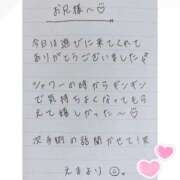 お兄様へ♡
今日は遊びに来てくれて
ありがとうございました
シャワーの時からギンギン
で気持ちよくなってもら
えて嬉しかったです
次予期の話聞かせて!笑
えまより